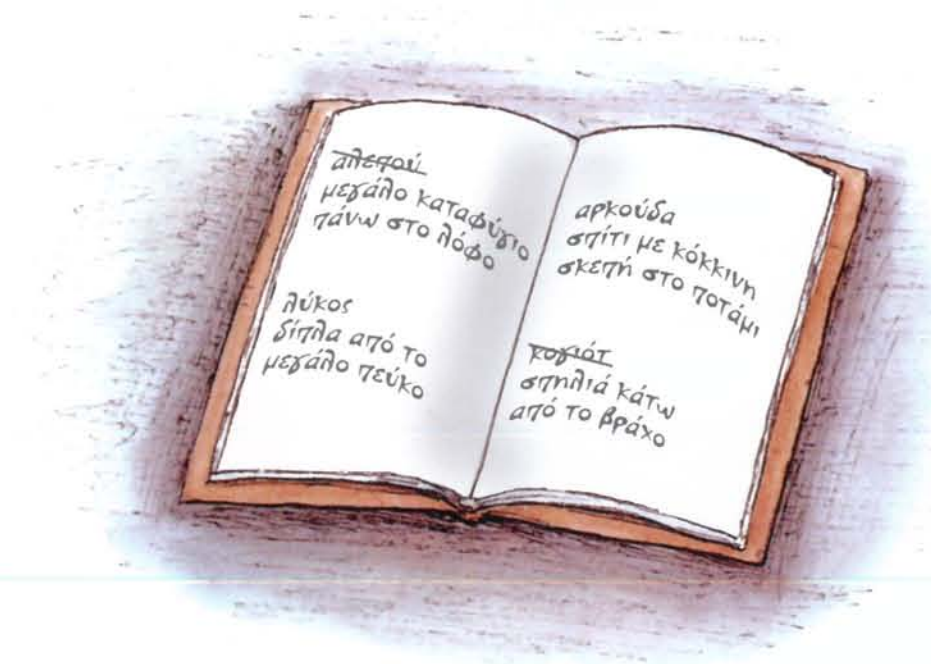 αλεπού
μεγάλο καταφύγιο
πάνω στο λόφο
λύκος
δίπλα από το
μεγάλο πεύκο
αρκούδα
σπίτι με κόκκινη
σκεπή στο ποτάμι
κογιότ
σπηλιά κάτω
από το βράχο